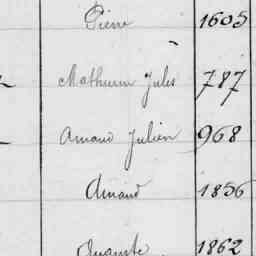 Pierre 1605
Mathurin Jules 787
Amand Julien 968
Amand 1856
Auguste 1862